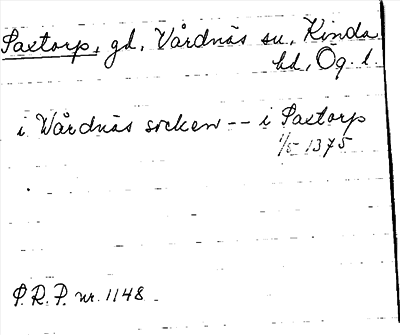 Saxtorp, gd, Vårdnäs sn, Kinda
hd, Ög. l.
i Wårdnäs socken -- i Saxtorp
1/5 1375
P.R.P. nr. 1148